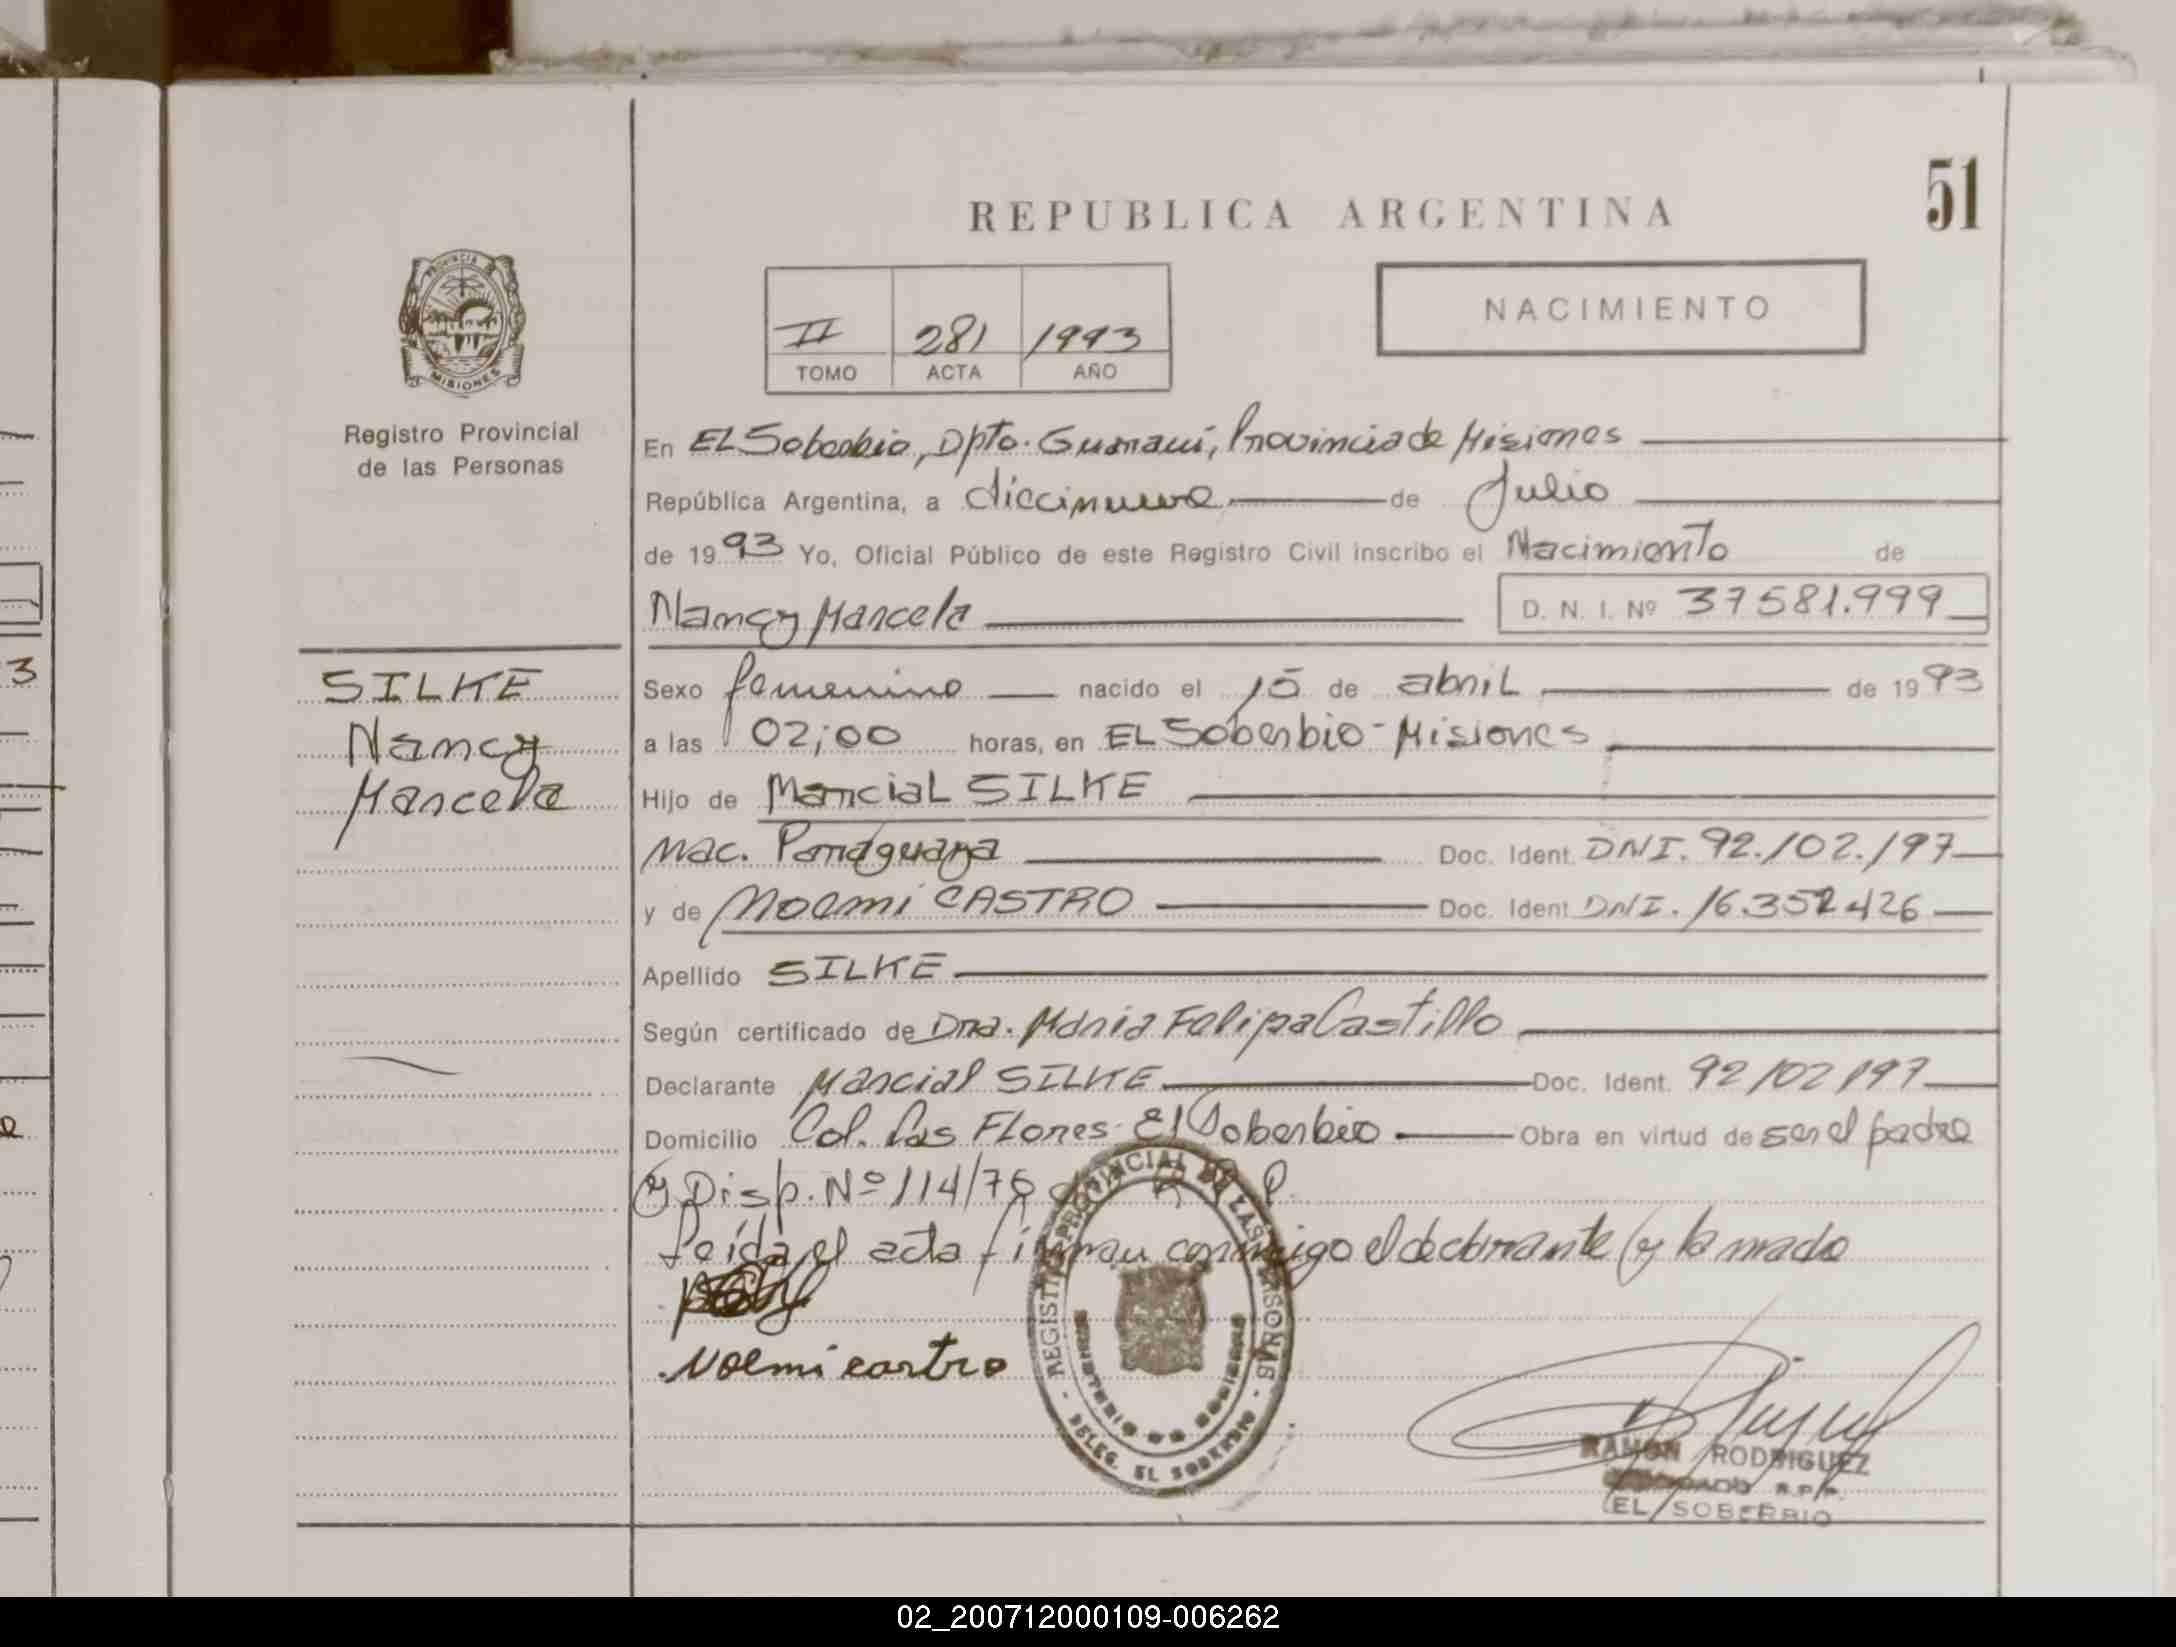 51
REPUBLICA ARGENTINA
PROVINCIA DE
MISIONES
Registro Provincial
de las Personas
II 281 1993
TOMO ACTA AÑO
NACIMIENTO
En EL Soberbio, Dpto. Guaraní, Provincia de Misiones
República Argentina, a diecinueve de Julio
de 1993 Yo, Oficial Público de este Registro Civil inscribo el Nacimiento de
Nancy Marcela D. N. I. Nº 37581.999
SILKE
Nancy
Marcela
Sexo femenino nacido el 15 de abril de 1993
a las 02;00 horas, en EL Soberbio - Misiones
Hijo de Marcial SILKE
Nac. Paraguaya Doc. Ident. DNI. 92.102.197
y de Noemi CASTRO Doc. Ident. DNI. 16.352.426
Apellido SILKE
Según certificado de Dra. Maria Felipa Castillo
Declarante Marcial SILKE Doc. Ident. 92102197
Domicilio Col. Las Flores - El Soberbio Obra en virtud de ser el padre
y Disp. Nº 114/76 R. P.
Leída el acta firman conmigo el declarante y la madre
Noemi castro
REGISTRO PROVINCIAL DE LAS PERSONAS
MINISTERIO DE GOBIERNO
DELEG. EL SOBERBIO
RAMON RODRIGUEZ
R.P.P.
EL SOBERBIO
3
02_200712000109-006262